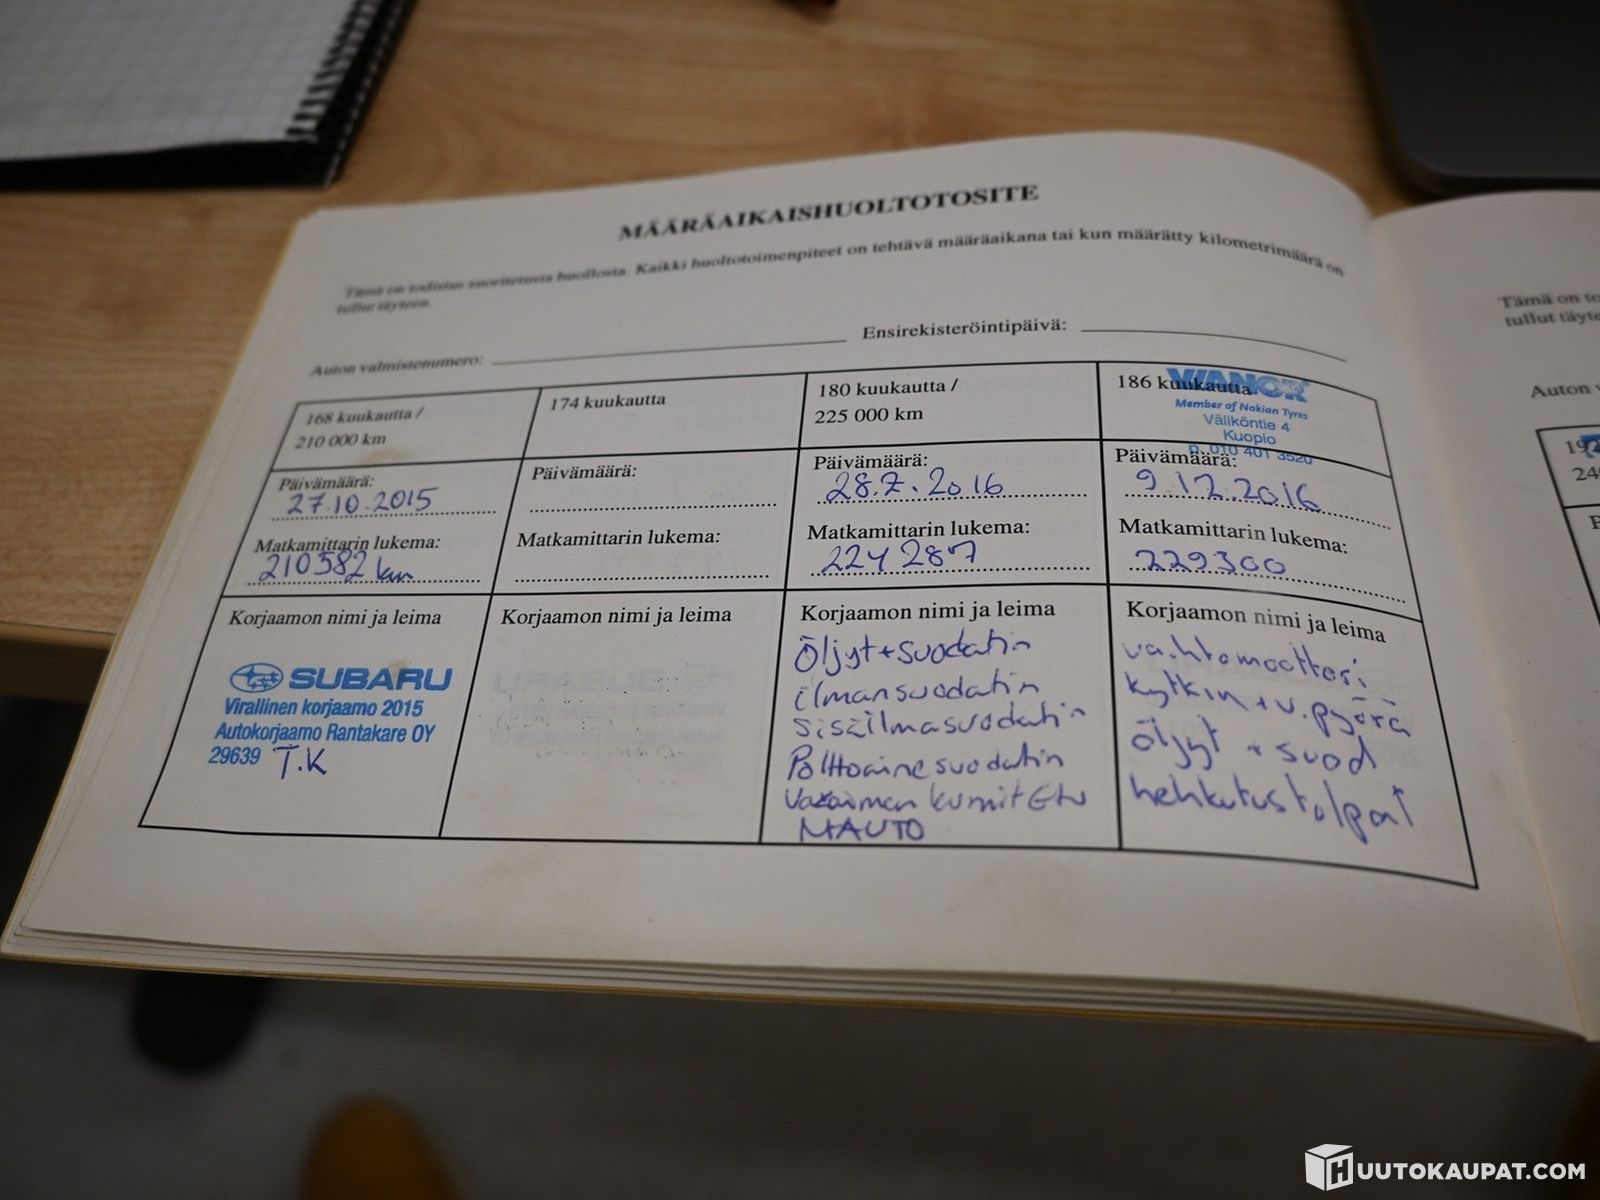 MÄÄRÄAIKAISHUOLTOTOSITE
Tämä on todistus suoritetusta huollosta. Kaikki huoltotoimenpiteet on tehtävä määräaikana tai kun määrätty kilometrimäärä on
tullut täyteen.
Auton valmistenumero:
Ensirekisteröintipäivä:
168 kuukautta /
210 000 km
Päivämäärä:
27.10.2015
Matkamittarin lukema:
210582 km
Korjaamon nimi ja leima
SUBARU
Virallinen korjaamo 2015
Autokorjaamo Rantakare OY
29639 T.K
174 kuukautta
Päivämäärä:
Matkamittarin lukema:
Korjaamon nimi ja leima
180 kuukautta /
225 000 km
Päivämäärä:
28.7.2016
Matkamittarin lukema:
224287
Korjaamon nimi ja leima
Öljyt+suodatin
ilmansuodatin
Sisäilmasuodatin
Polttoainesuodatin
kumit Etu
MAUTO
186 kuukautta
VIANOR
Member of Nokian Tyres
Väliköntie 4
Kuopio
p. 010 401 3520
Päivämäärä:
9.12.2016
Matkamittarin lukema:
229300
Korjaamon nimi ja leima
vaihtomoottori
kytkin + v.pyörä
öljyt + suod
hehkutustolpat
Tämä on to
tullut täyte
Auton v
192
240
P
HUUTOKAUPAT.COM